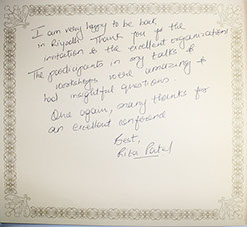 I am very happy to be back
in Riyadh. Thank you for the
invitation & the excellent organisation
The participants in my talks &
workshops were amazing &
had insightful questions.
Once again, many thanks for
an excellent conference
Best,
Rita Patel